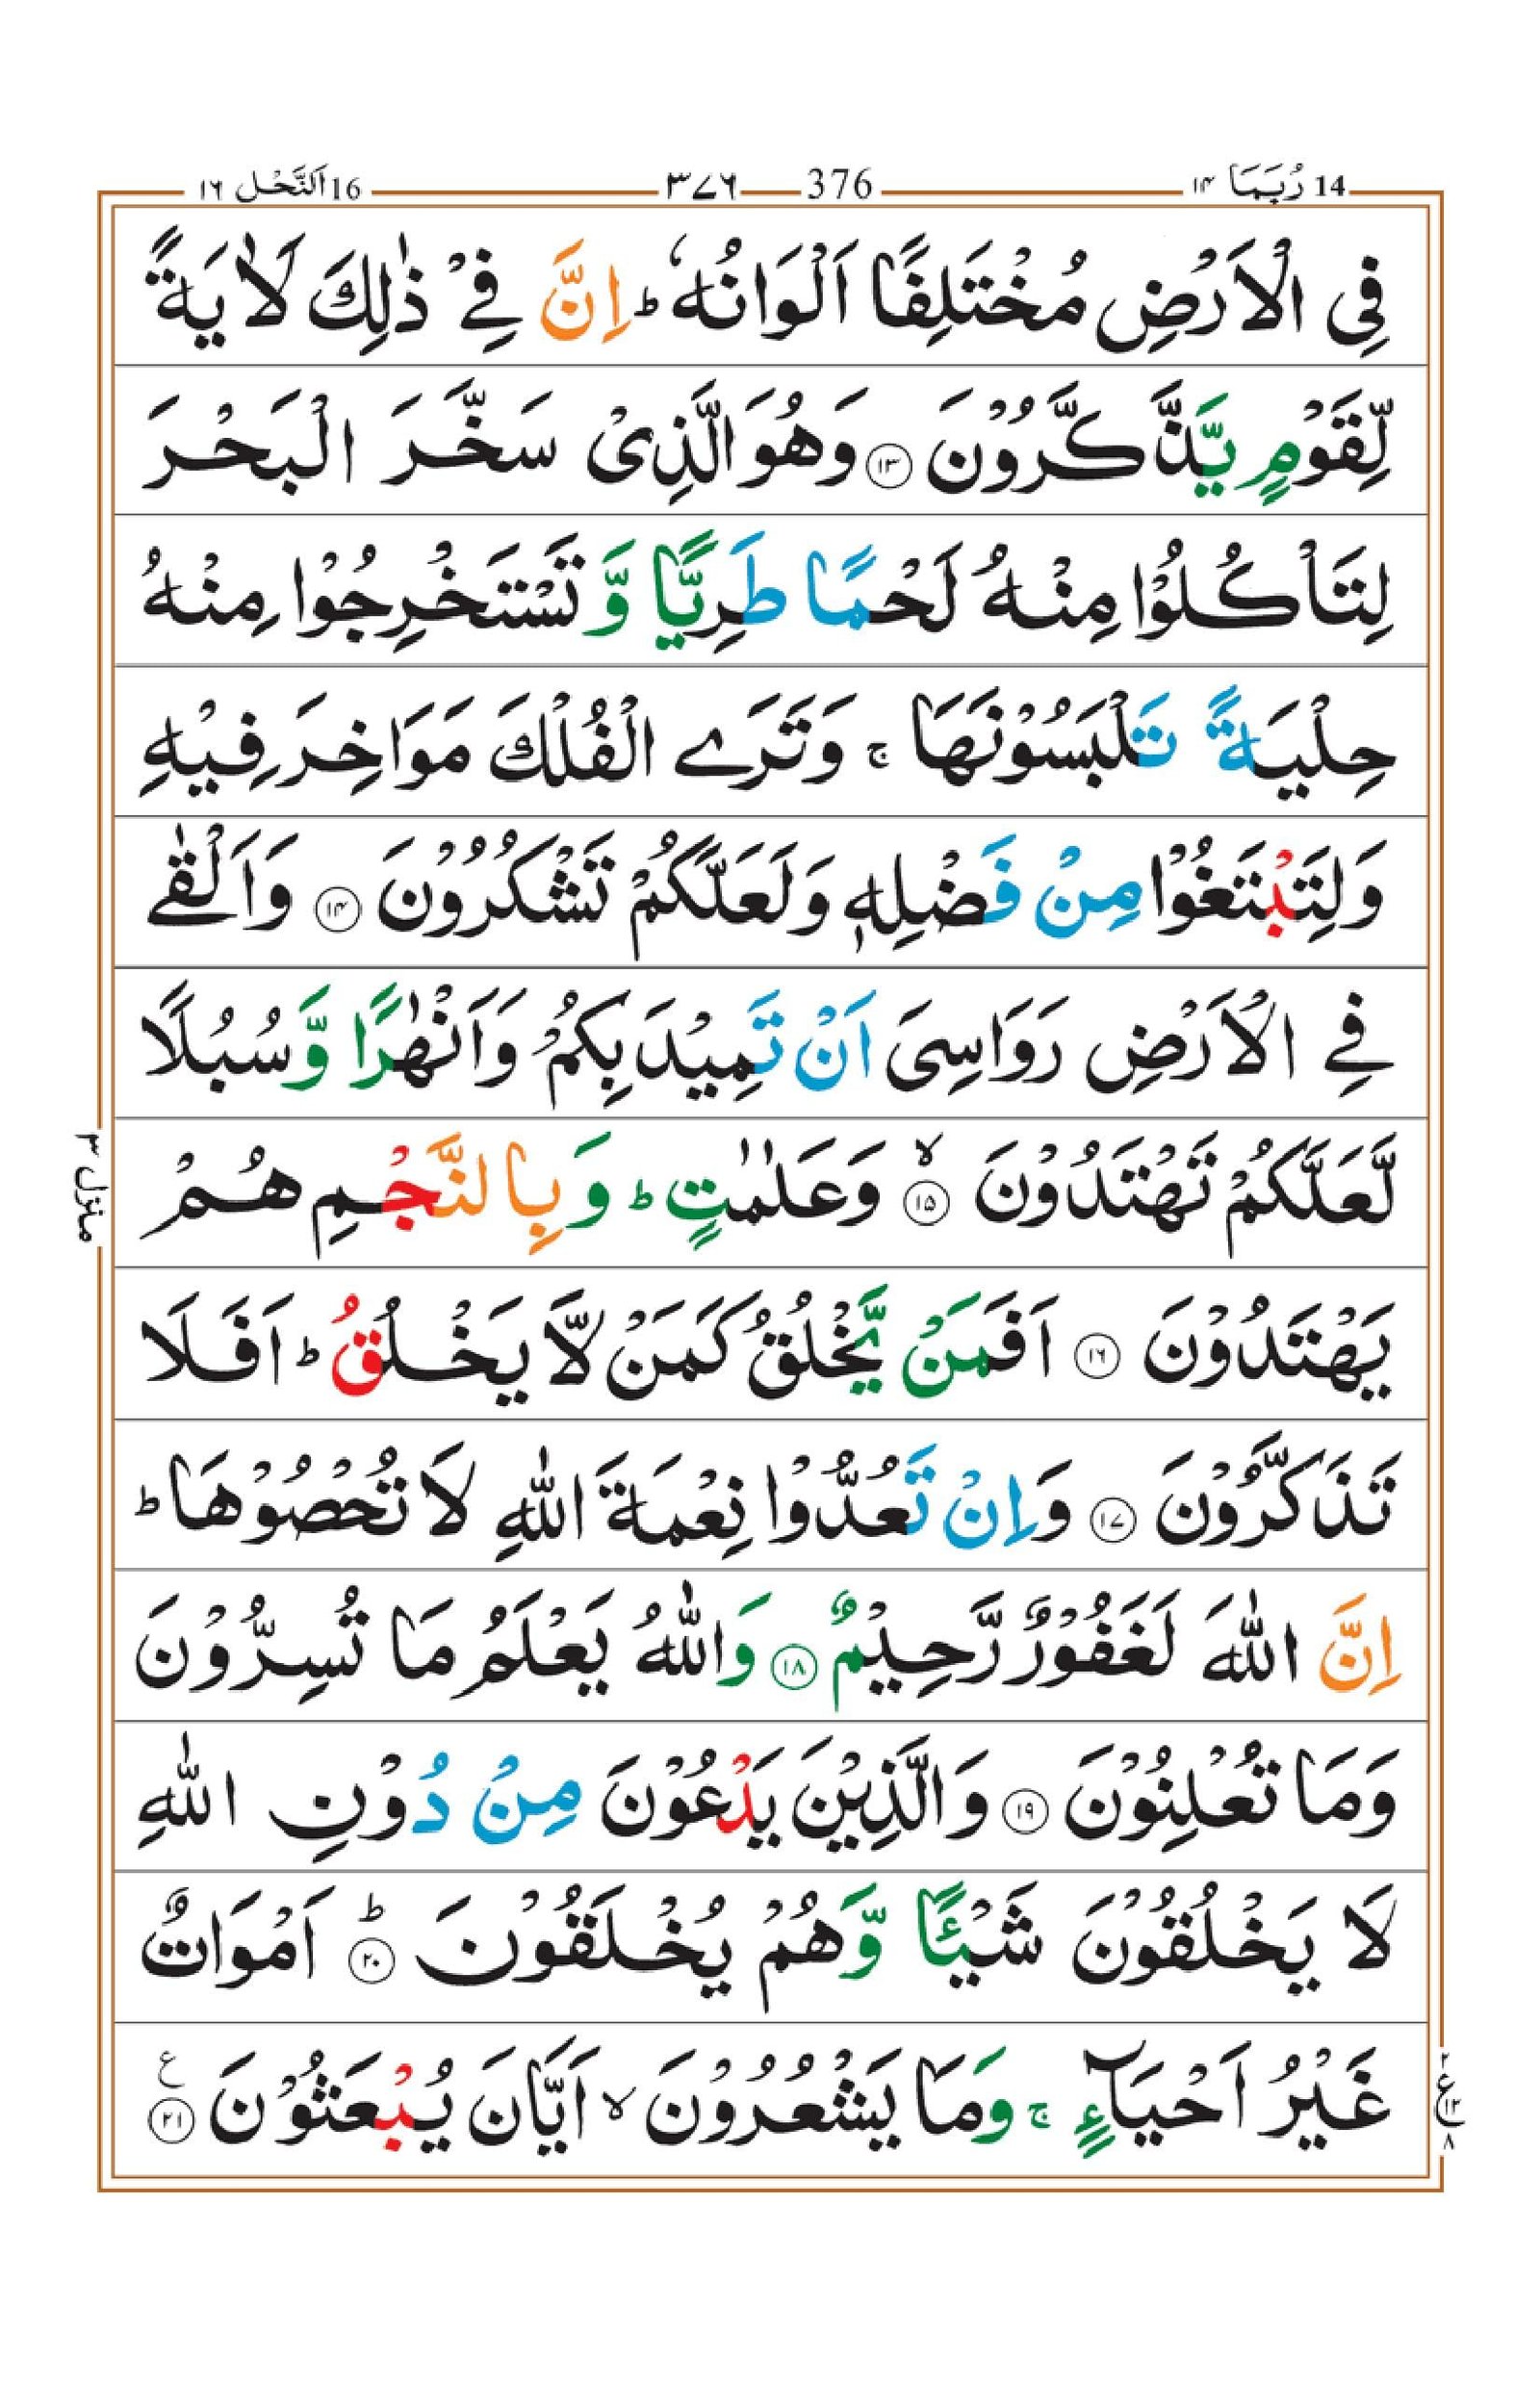 14 رُبَمَا ۱۴ 376 ۳۷۶ 16 اَلنَّحْل ۱۶
فِی الْاَرْضِ مُخْتَلِفًا اَلْوَانُهٗ ؕ اِنَّ فِیْ ذٰلِكَ لَاٰیَةً
لِّقَوْمٍ یَّذَّكَّرُوْنَ ۱۳ وَهُوَ الَّذِیْ سَخَّرَ الْبَحْرَ
لِتَاْكُلُوْا مِنْهُ لَحْمًا طَرِیًّا وَّ تَسْتَخْرِجُوْا مِنْهُ
حِلْیَةً تَلْبَسُوْنَهَا ۚ وَتَرَے الْفُلْكَ مَوَاخِرَ فِیْهِ
وَلِتَبْتَغُوْا مِنْ فَضْلِهٖ وَلَعَلَّكُمْ تَشْكُرُوْنَ ۱۴ وَاَلْقٰے
فِے الْاَرْضِ رَوَاسِیَ اَنْ تَمِیْدَ بِكُمْ وَاَنْهٰرًا وَّسُبُلًا
لَّعَلَّكُمْ تَهْتَدُوْنَ ۱۵ۙ وَعَلٰمٰتٍ ؕ وَبِالنَّجْمِ هُمْ
یَهْتَدُوْنَ ۱۶ اَفَمَنْ یَّخْلُقُ كَمَنْ لَّا یَخْلُقُ ؕ اَفَلَا
تَذَكَّرُوْنَ ۱۷ وَاِنْ تَعُدُّوْا نِعْمَةَ اللّٰهِ لَا تُحْصُوْهَا ؕ
اِنَّ اللّٰهَ لَغَفُوْرٌ رَّحِیْمٌ ۱۸ وَاللّٰهُ یَعْلَمُ مَا تُسِرُّوْنَ
وَمَا تُعْلِنُوْنَ ۱۹ وَالَّذِیْنَ یَدْعُوْنَ مِنْ دُوْنِ اللّٰهِ
لَا یَخْلُقُوْنَ شَیْـًٔا وَّهُمْ یُخْلَقُوْنَ ۲۰ؕ اَمْوَاتٌ
غَیْرُ اَحْیَآءٍ ۚ وَمَا یَشْعُرُوْنَ ۙ اَیَّانَ یُبْعَثُوْنَ ۲۱ ع
منزل ۳
۲ ع ۱۲ ۸